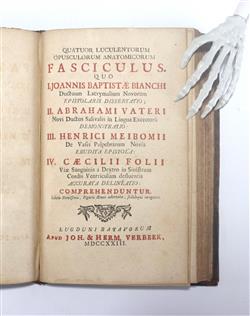 QUATUOR LUCULENTORUM
OPUSCULORUM ANATOMICORUM
FASCICULUS.
QUO
I. JOANNIS BAPTISTÆ BIANCHI
Ductuum Lacrymalium Novorum
EPISTOLARIS DISSERTATIO;
II. ABRAHAMI VATERI
Novi Ductus Salivalis in Lingua Excretorii
DEMONSTRATIO:
III. HENRICI MEIBOMII
De Vasis Palpebrarum Novis
ERUDITA EPISTOLA:
IV. CÆCILII FOLII
Viæ Sanguinis a Dextro in Sinistrum
Cordis Ventriculum defluentis
ACCURATA DELINEATIO:
COMPREHENDUNTUR.
LUGDUNI BATAVORUM
APUD JOH. & HERM. VERBEEK,
MDCCXXIII.